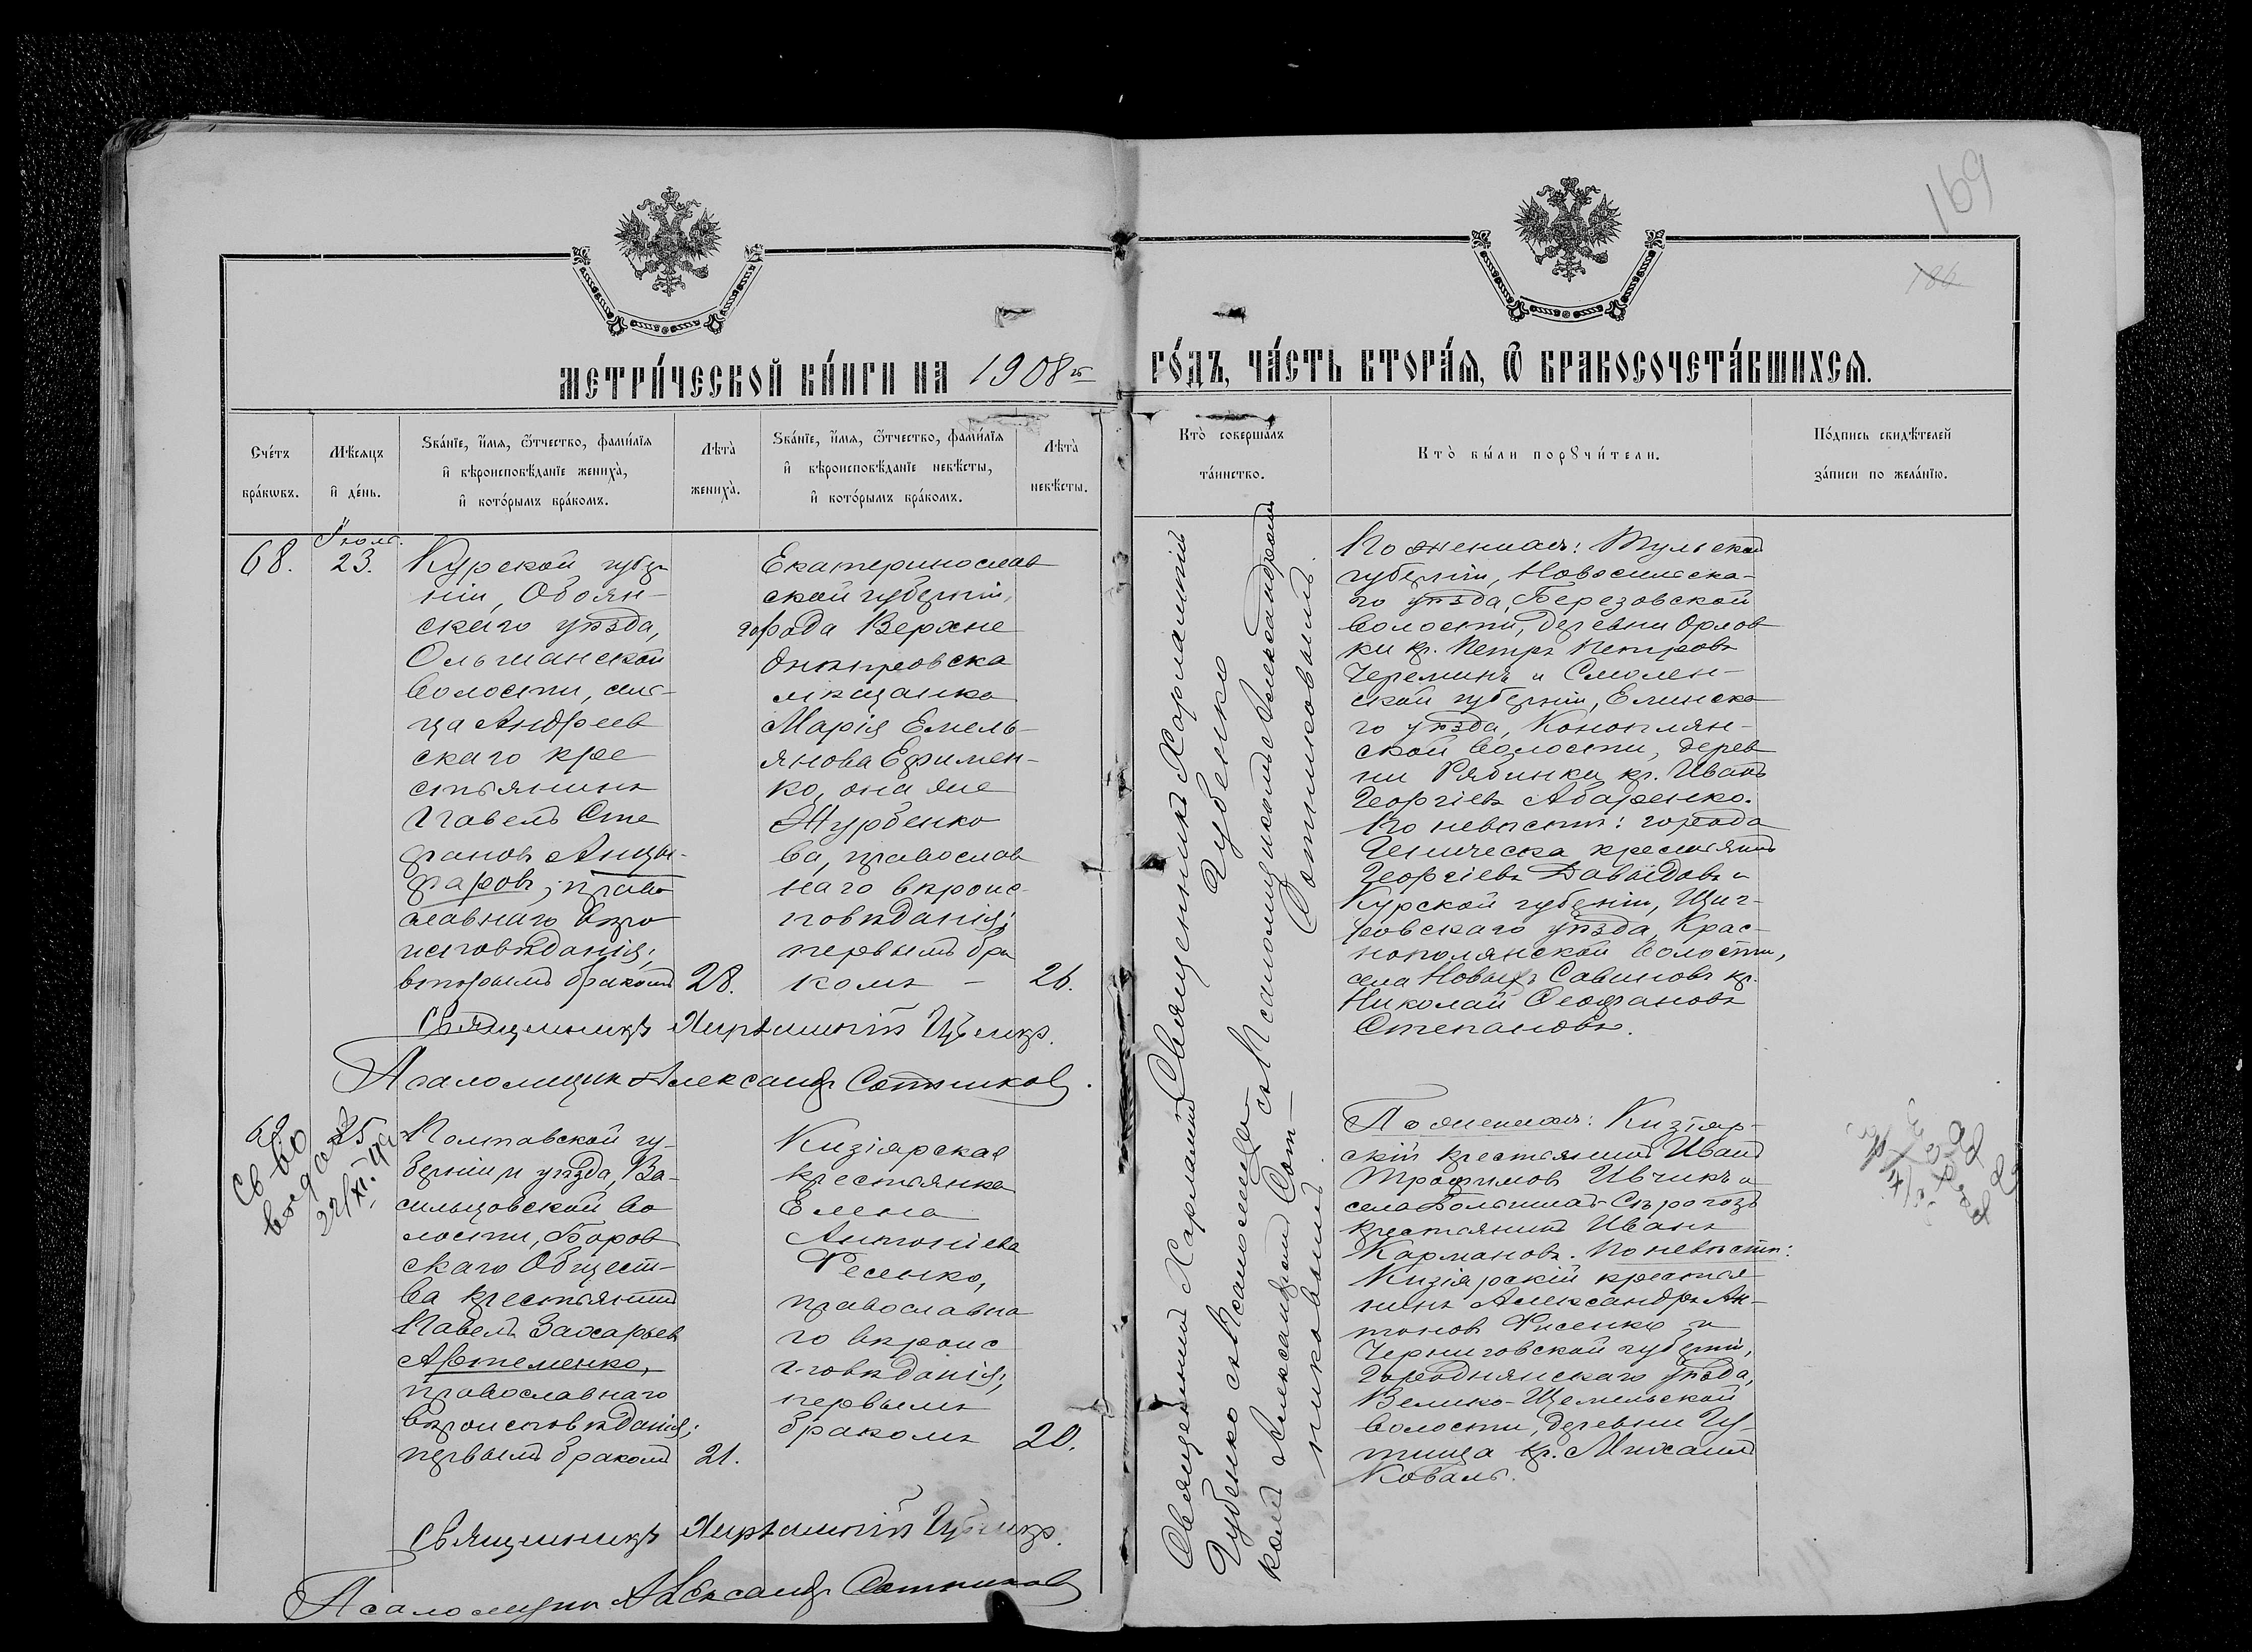 169
186
МЕТРИ́ЧЕСКОЙ КНИ́ГИ НА 1908й
ГО́ДЪ, ЧА́СТЬ ВТОРА́Я, Ѿ БРАКОСОЧЕТА́ВШИХСЯ.
Сче́тъ
бра́кѡвъ.
Мѣ́сяцъ
и҆ де́нь.
Ѕва́нїе, и҆́мя, ѻ҆́тчество, фами́лїя
и҆ вѣроисповѣ́данїе жениха̀,
и҆ кото́рымъ бра́комъ.
Лѣта̀
жениха̀.
Ѕва́нїе, и҆́мя, ѻ҆́тчество, фами́лїя
и҆ вѣроисповѣ́данїе невѣ́сты,
и҆ кото́рымъ бра́комъ.
Лѣта̀
невѣ́сты.
Кто̀ соверша́лъ
та́инство.
Кто̀ бы́ли порꙋчи́тели.
По́дпись свидѣ́телей
за́писи по жела́нїю.
68.
Іюль.
23.
Курской губер
ніи, Обоян-
скаго уѣзда,
Ольшанской
волости, сел-
ца Андреев
скаго кре
стьянинъ
Павелъ Сте
фановъ
право
славнаго вѣро
исповѣданія;
вторымъ бракомъ
28.
Екатеринослав
ской губерніи,
города Верхне
днѣпровска
мѣщанка
Марія Емель-
янова Ефимен-
ко, она же
Журбенко
ва, православ
наго вѣроис-
повѣданія;
первымъ бра
комъ –
26.
Священникъ Харлампій Губенко
Псаломщикъ Александръ
Сотниковымъ.
По женихѣ: Тульской
губерніи, Новосильска-
го уѣзда, Березовской
волости, деревни Орлов
ки кр. Петръ Петровъ
Череминъ и Смолен-
ской губерніи, Елинска
го уѣзда, Коноплян-
ской волости, дерев
ни Рябинки кр. Иванъ
Георгіевъ Абаренко.
По невѣстѣ: города
Геническа крестьянинъ
Георгіевъ Давыдовъ и
Курской губерніи, Щиг-
ровскаго уѣзда, Крас-
нополянской волости,
села Новыхъ Савиновъ кр.
Николай Феофановъ
Степановъ.
Священникъ Харлампій Губенко.
Псаломщик Александр Сотников.
69
25.
Св-во
выдано
22/XI.
Полтавской гу-
берніи и уѣзда, Ва-
сильцовской во
лости, Боров
скаго Общест-
ва крестьянинъ
Павелъ Захарьев
Артеменко,
православнаго
вѣроисповѣданія;
первымъ бракомъ
21.
Кизіярская
крестьянка
Елена
Антоніева
Фесенко,
православна
го вѣроис
повѣданія;
первымъ
бракомъ
20.
Священникъ Харлампій
Губенко съ Псаломщи-
комъ Александромъ Сот-
никовымъ.
По женихѣ: Кизіяр-
скій крестьянинъ Иванъ
Трофимовъ Ивчикъ и
села Большихъ-Сѣрогозъ
крестьянинъ Иванъ
Кармановъ. По невѣстѣ:
Кизіярскій крестья
нинъ Александръ Ан-
тоновъ Фисенко и
Черниговской губерніи,
Городнянскаго уѣзда,
Велико-Щемельской
волости, деревни Гу-
тища кр. Михаилъ
Коваль.
Священникъ Харлампій Губенко.
Псаломщик Александр Сотников